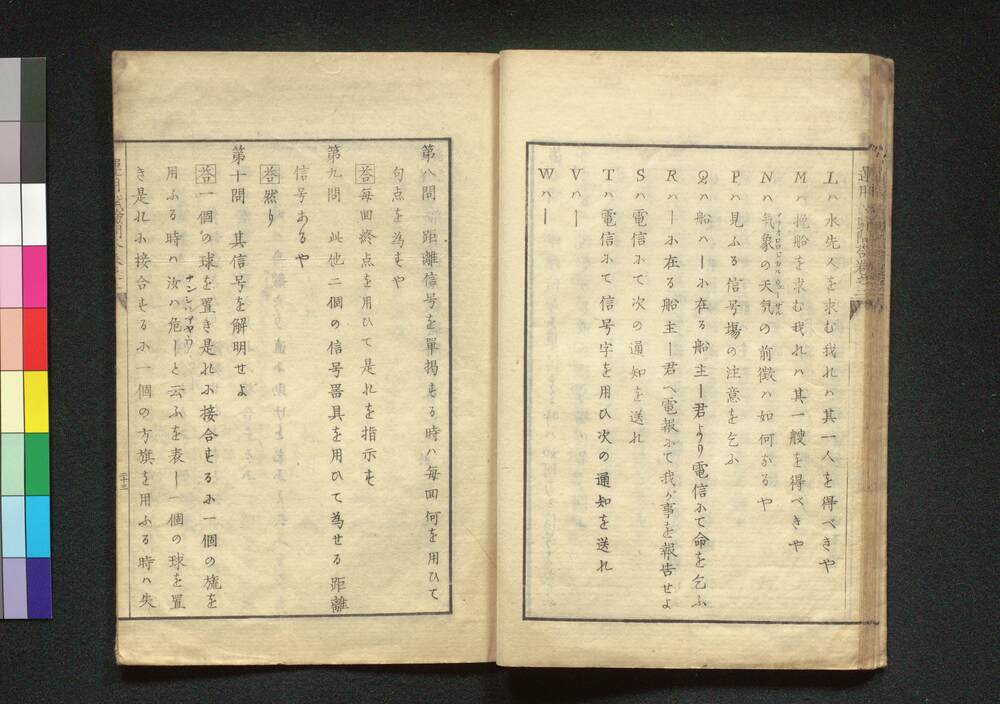 Lハ水先人を求む我れハ其一人を得べきや
Mハ挽船を求む我れハ其一艘を得べきや
Nハ気象の天気の前徴ハ如何なるや
Pハ見ふる信号場の注意を乞ふ
Qハ船ハ―ニ在る船主―君より電信にて命を乞ふ
Rハ―ニ在る船主―君へ電報にて我が事を報告せよ
Sハ電信にて次の通知を送れ
Tハ電信にて信号字を用ひ次の通知を送れ
Vハ―
Wハ―
第八問 距離信号を単掲する時ハ毎回何を用ひて
句点を為すや
答毎回終点を用ひて是れを指示す
第九問 此他二個の信号器具を用ひて為せる距離
信号あるや
答然り
第十問 其信号を解明せよ
答一個の球を置き是れに接合するに一個の旒を
用ふる時ハ汝ハ危―と云ふを表し一個の球を置
き是れに接合するに一個の方旗を用ふる時ハ失
二十三